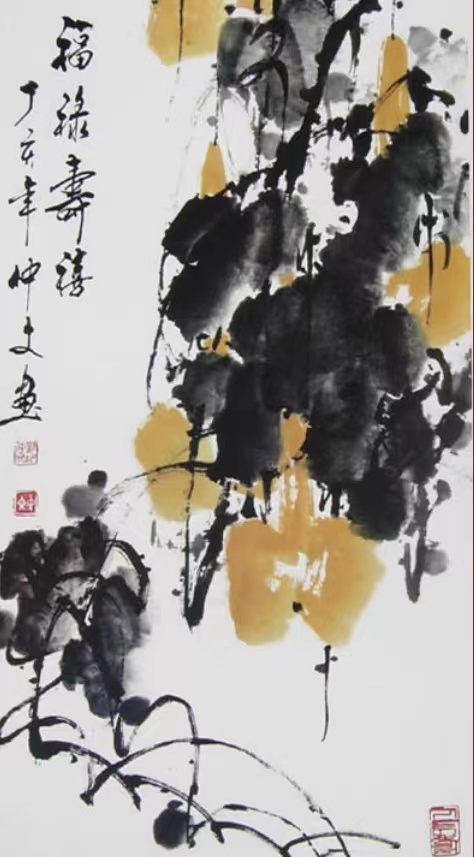 福禄壽禧
丁亥年仲文画